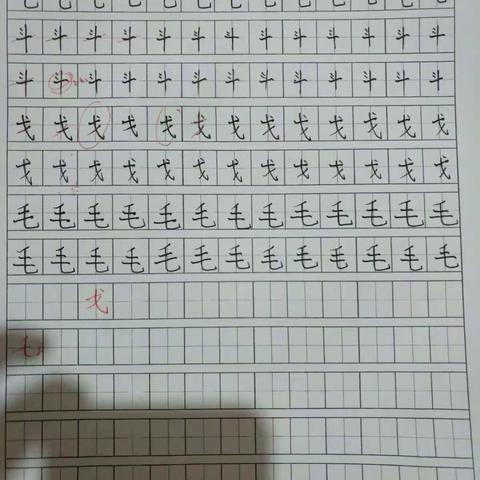 斗斗斗斗斗斗斗斗斗斗斗斗斗
斗斗斗斗斗斗斗斗斗斗斗斗斗
戈戈戈戈戈戈戈戈戈戈戈戈戈
戈戈戈戈戈戈戈戈戈戈戈戈戈
毛毛毛毛毛毛毛毛毛毛毛毛毛
毛毛毛毛毛毛毛毛毛毛毛毛毛
戈